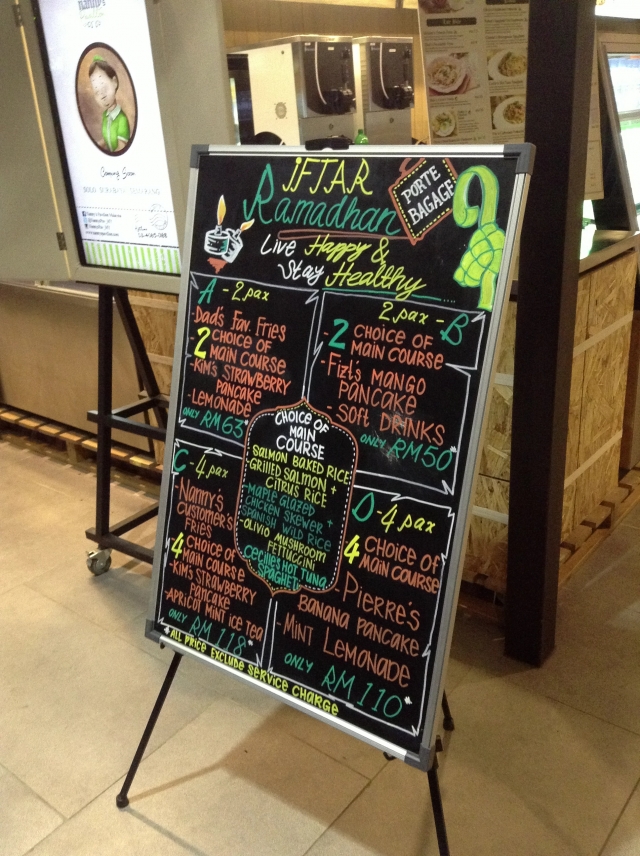 iFTAR
Ramadhan
PORTE
BAGAGE
Live Happy &
Stay Healthy....
A - 2 pax
- Dad's Fav. Fries
- 2 CHOICE OF
MAIN COURSE
- Kim's STRAWBERRY
PANCAKE
- LEMONADE
ONLY RM 63*
2 pax - B
- 2 CHOICE OF
MAIN COURSE
- Fizi's MANGO
PANCAKE
- SOFT DRINKS
ONLY RM 50*
CHOICE OF
MAIN
COURSE
SALMON BAKED RICE
- GRILLED SALMON +
CITRUS RICE
- MAPLE GLAZED
CHICKEN SKEWER +
SPANISH WILD RICE
- OLIVIO MUSHROOM
FETTUCCINI
CECILLE'S HOT TUNA
SPAGHETTI
C - 4 pax
- NANNY'S
CUSTOMER'S
FRIES
4 CHOICE OF
MAIN COURSE
- KIM'S STRAWBERRY
PANCAKE
- APRICOT MINT ICE TEA
ONLY RM 118*
D - 4 pax
4 CHOICE OF
MAIN COURSE
- PIERRE'S
BANANA PANCAKE
- MINT LEMONADE
ONLY RM 110*
*ALL PRICE EXCLUDE SERVICE CHARGE
Coming Soon